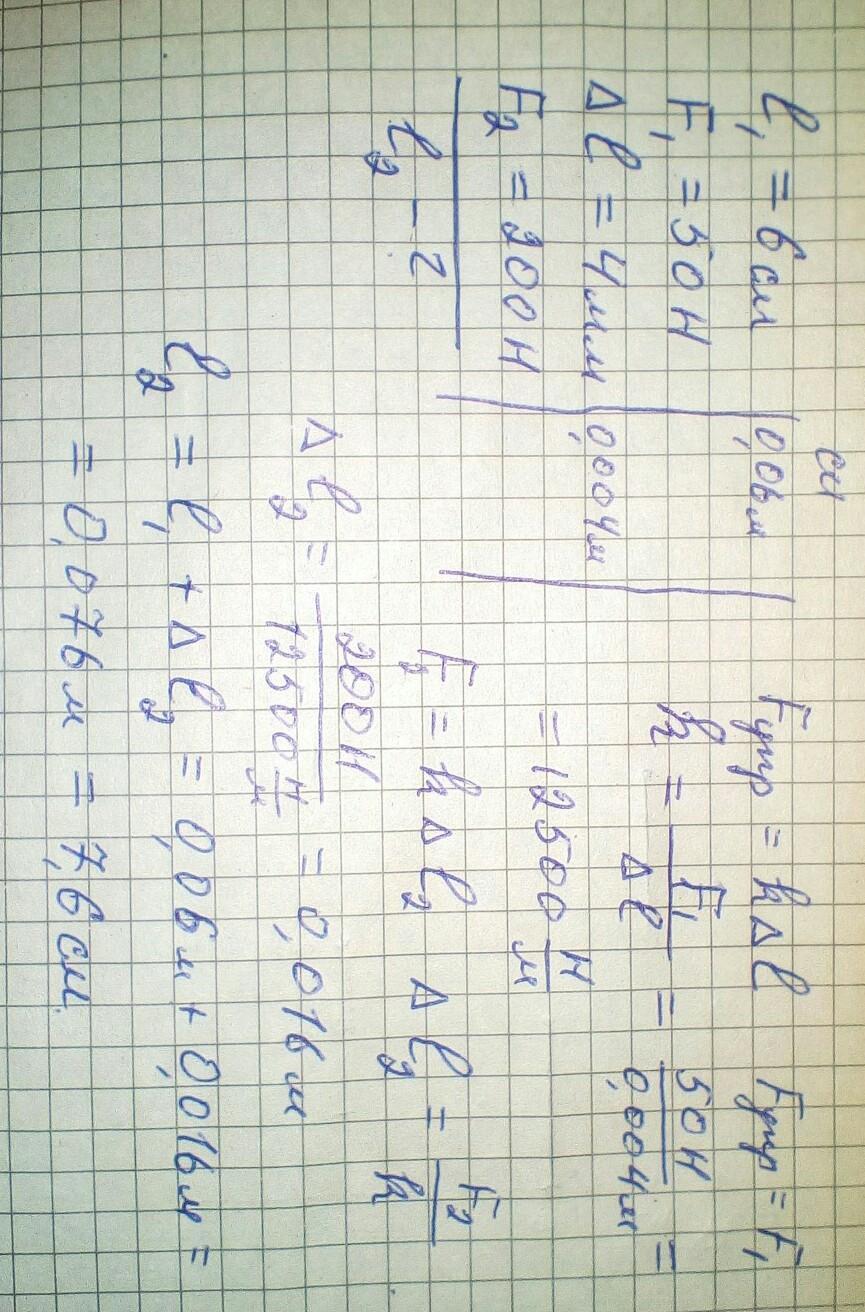 си
l₁ = 6 см | 0,06 м
F₁ = 50 Н
Δl = 4 мм | 0,004 м
F₂ = 200 Н
l₂ - ?
Fупр = kΔl Fупр = F₁
k = F₁/Δl = 50 Н/0,004 м =
= 12500 Н/м
F₂ = kΔl₂ Δl₂ = F₂/k
Δl₂ = 200 Н/12500 Н/м = 0,016 м
l₂ = l₁ + Δl₂ = 0,06 м + 0,016 м =
= 0,076 м = 7,6 см.